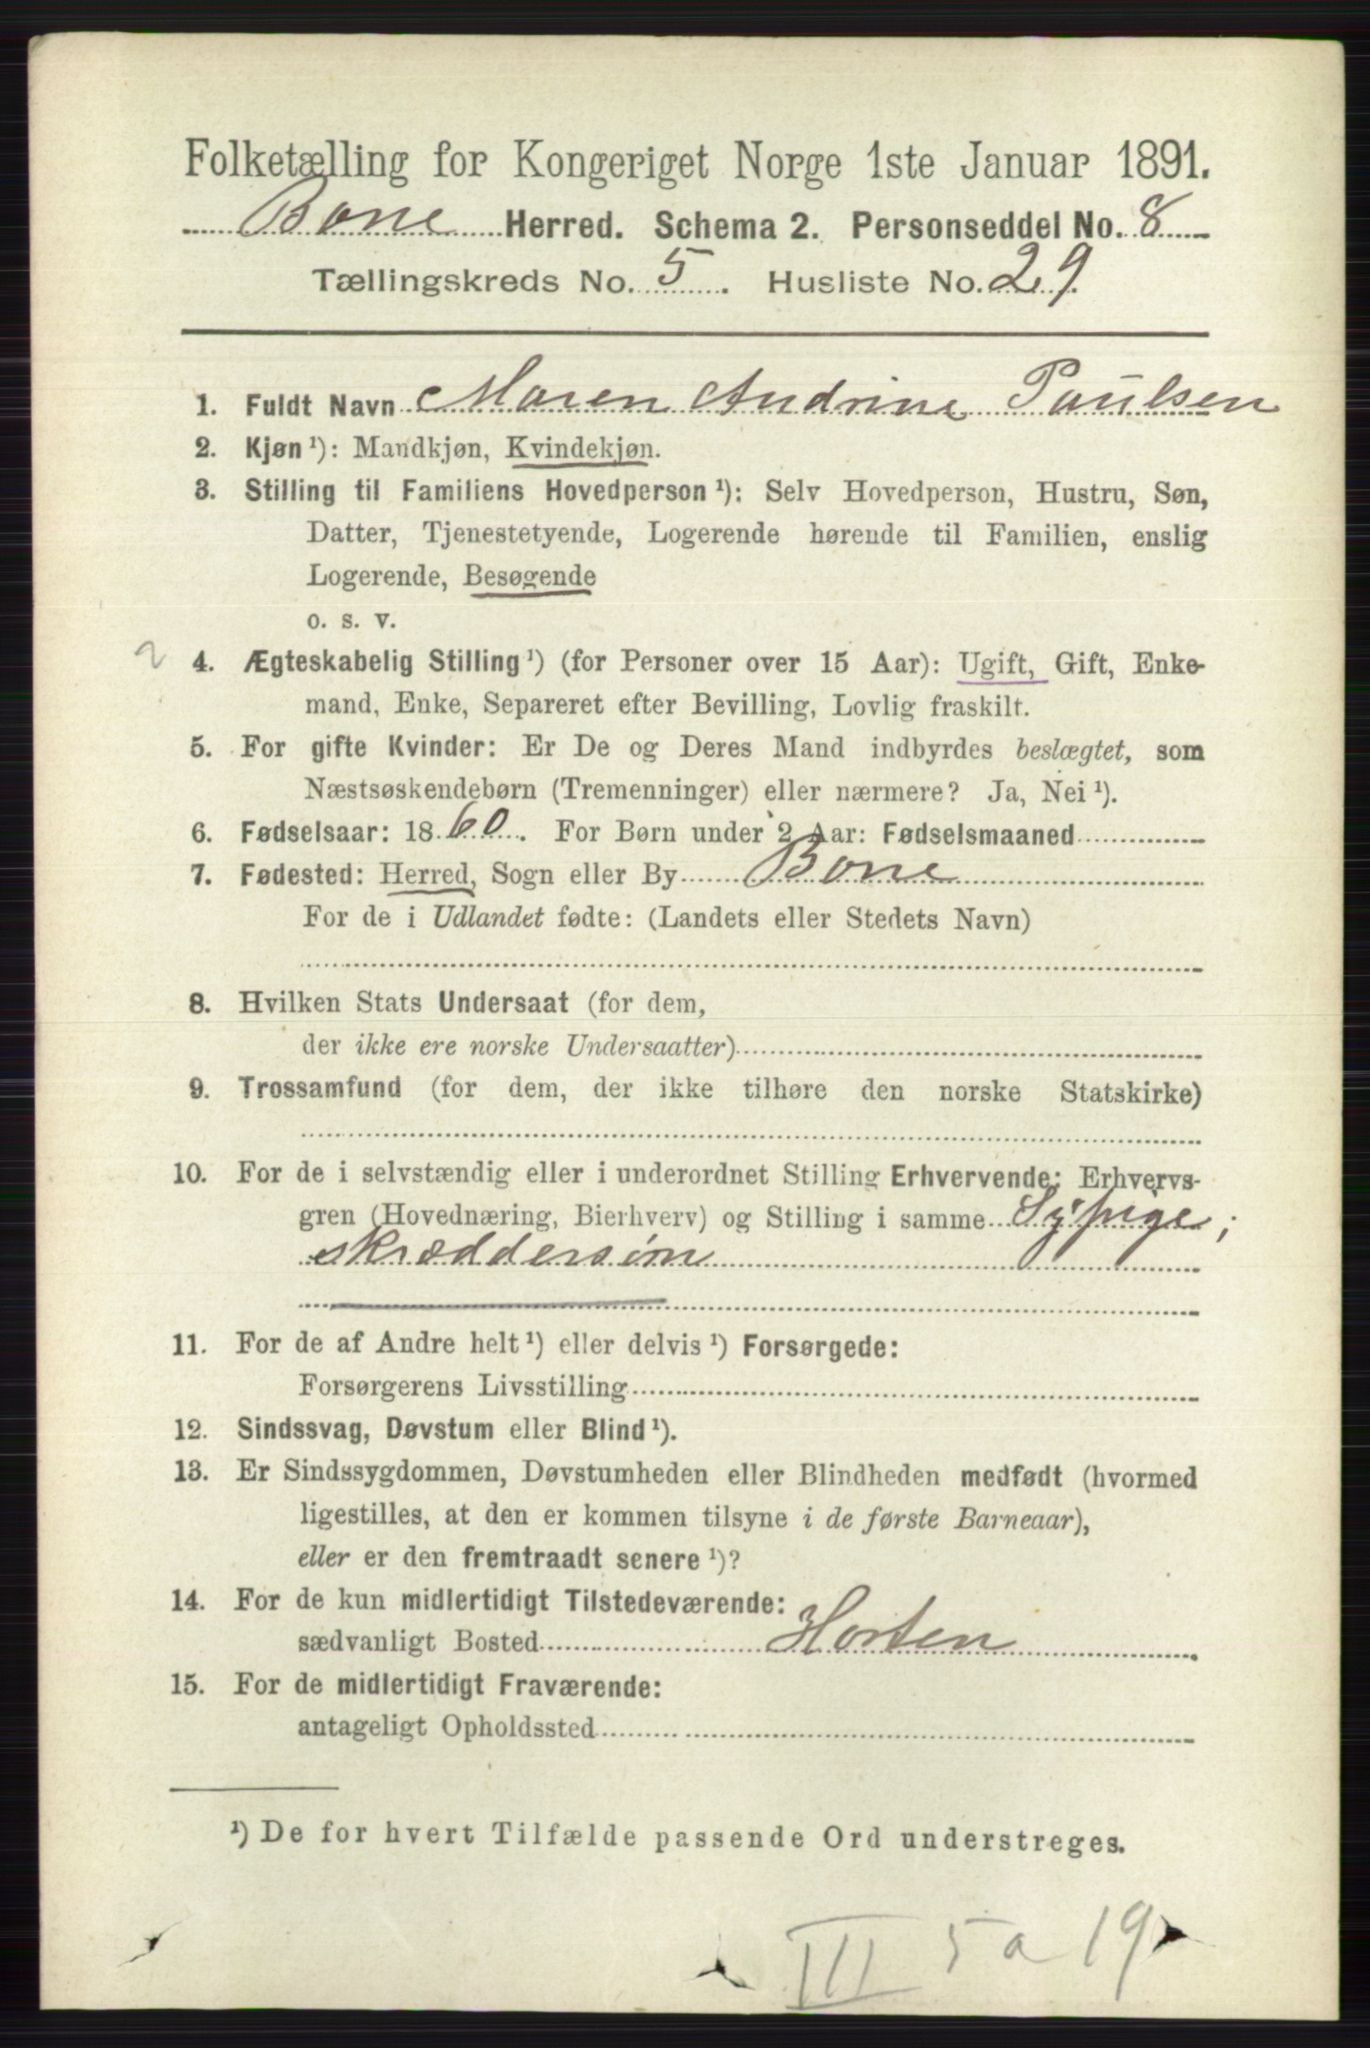 Folketælling for Kongeriget Norge 1ste Januar 1891.
Borre Herred. Schema 2. Personseddel No. 8
Tællingskreds No. 5. Husliste No. 29.
1. Fuldt Navn Maren Andrine Paulsen
2. Kjøn ¹): Mandkjøn, Kvindekjøn.
3. Stilling til Familiens Hovedperson ¹): Selv Hovedperson, Hustru, Søn,
Datter, Tjenestetyende, Logerende hørende til Familien, enslig
Logerende, Besøgende
o. s. v.
2 4. Ægteskabelig Stilling ¹) (for Personer over 15 Aar): Ugift, Gift, Enke-
mand, Enke, Separeret efter Bevilling, Lovlig fraskilt.
5. For gifte Kvinder: Er De og Deres Mand indbyrdes beslægtet, som
Næstsøskendebørn (Tremenninger) eller nærmere? Ja, Nei ¹).
6. Fødselsaar: 1860. For Børn under 2 Aar: Fødselsmaaned
7. Fødested: Herred, Sogn eller By Borre
For de i Udlandet fødte: (Landets eller Stedets Navn)
8. Hvilken Stats Undersaat (for dem,
der ikke ere norske Undersaatter)
9. Trossamfund (for dem, der ikke tilhøre den norske Statskirke)
10. For de i selvstændig eller i underordnet Stilling Erhvervende: Erhvervs-
gren (Hovednæring, Bierhverv) og Stilling i samme Sypige;
skræddersøm
11. For de af Andre helt ¹) eller delvis ¹) Forsørgede:
Forsørgerens Livsstilling
12. Sindssvag, Døvstum eller Blind ¹).
13. Er Sindssygdommen, Døvstumheden eller Blindheden medfødt (hvormed
ligestilles, at den er kommen tilsyne i de første Barneaar),
eller er den fremtraadt senere ¹)?
14. For de kun midlertidigt Tilstedeværende:
sædvanligt Bosted Horten
15. For de midlertidigt Fraværende:
antageligt Opholdssted
¹) De for hvert Tilfælde passende Ord understreges.
III 5a 19